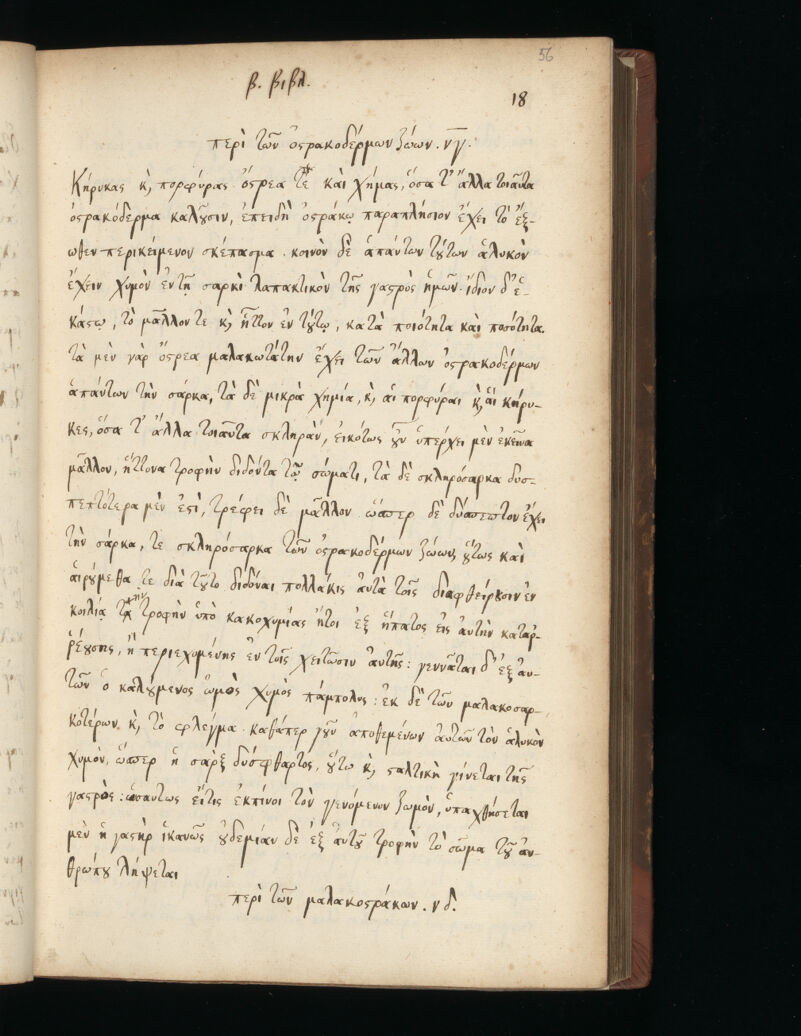 56
β. βιβλ.
18
περὶ τῶν ὀστρακοδέρμων ζώων. νγ.
Κήρυκας κ̀ πορφύρας ὄστρεά τε καὶ χήμας, ὅσα τ' ἄλλα τοιαῦτα
ὀστρακόδερμα καλοῦσιν, ἐπειδὴ ὀστράκῳ παραπλήσιον ἔχει τὸ ἔξ-
ωθεν περικείμενον σκέπασμα. κοινὸν δὲ ἁπάντων τούτων ἁλυκὸν
ἔχειν χυμὸν ἐν τῇ σαρκὶ λαπακτικὸν τῆς γαστρὸς ἡμῶν. ἴδιον δ' ἑ-
κάστῳ, τὸ μᾶλλον τε κ̀ ἧττον ἐν τούτῳ, κατὰ ποιότητα καὶ ποσότητα.
τὰ μὲν γὰρ ὄστρεα μαλακωτάτην ἔχει τῶν ἄλλων ὀστρακοδέρμων
ἁπάντων τὴν σάρκα, τὰ δὲ μικρὰ χημία, κ̀ αἱ πορφύραι κ̀ αἱ κήρυ-
κες, ὅσα τ' ἄλλα τοιαῦτα σκληρὰν, εἰκότως οὖν ὑπέρχει μὲν ἐκεῖνα
μᾶλλον, ἥττονα τροφὴν διδόντα τῷ σώματι, τὰ δὲ σκληρόσαρκα δυσ-
πεπτότερα μὲν ἐστὶ, τρέφει δὲ μᾶλλον. ὥσπερ δὲ δύσπεπτον ἔχει
τὴν σάρκα, τε σκληρόσαρκα τῶν ὀστρακοδέρμων ζώων, οὕτως καὶ
αἱρούμεθα τε διὰ τοῦτο διδόναι πολλάκις αὐτὰ τοῖς διαφθείρουσιν ἐν
κοιλίᾳ τὴν τροφὴν ὑπὸ κακοχυμίας ἤτοι ἐξ ἥπατος εἰς αὐτὴν καταρ-
ρεούσης, ἢ περιεχομένης ἐν τοῖς χειτῶσιν αὐτῆς: γεννᾶται δ' ἐξ αὐ-
τῶν ὁ καλούμενος ὠμὸς χυμὸς πάμπολυς: ἐκ δὲ τῶν μαλακοσαρ-
κοτέρων κ̀ τὸ φλέγμα. καθάπερ γοῦν ἀποθεμένων αὐτῶν τὸν ἁλυκὸν
χυμὸν, ὥσπερ ἡ σὰρξ δύσφθαρτος, οὕτω κ̀ σταλτικὴ γίνεται τῆς
γαστρὸς: ὡσαύτως εἴτις ἐκπίνοι τὸν γενόμενον ζωμὸν, ὑπαχθήσεται
μὲν ἡ γαστὴρ ἱκανῶς οὐδεμίαν δὲ ἐξ αὐτοῦ τροφὴν τὸ σῶμα τοῦ ἀν-
θρώπου λήψεται
περὶ τῶν μαλακοστράκων. νδ.